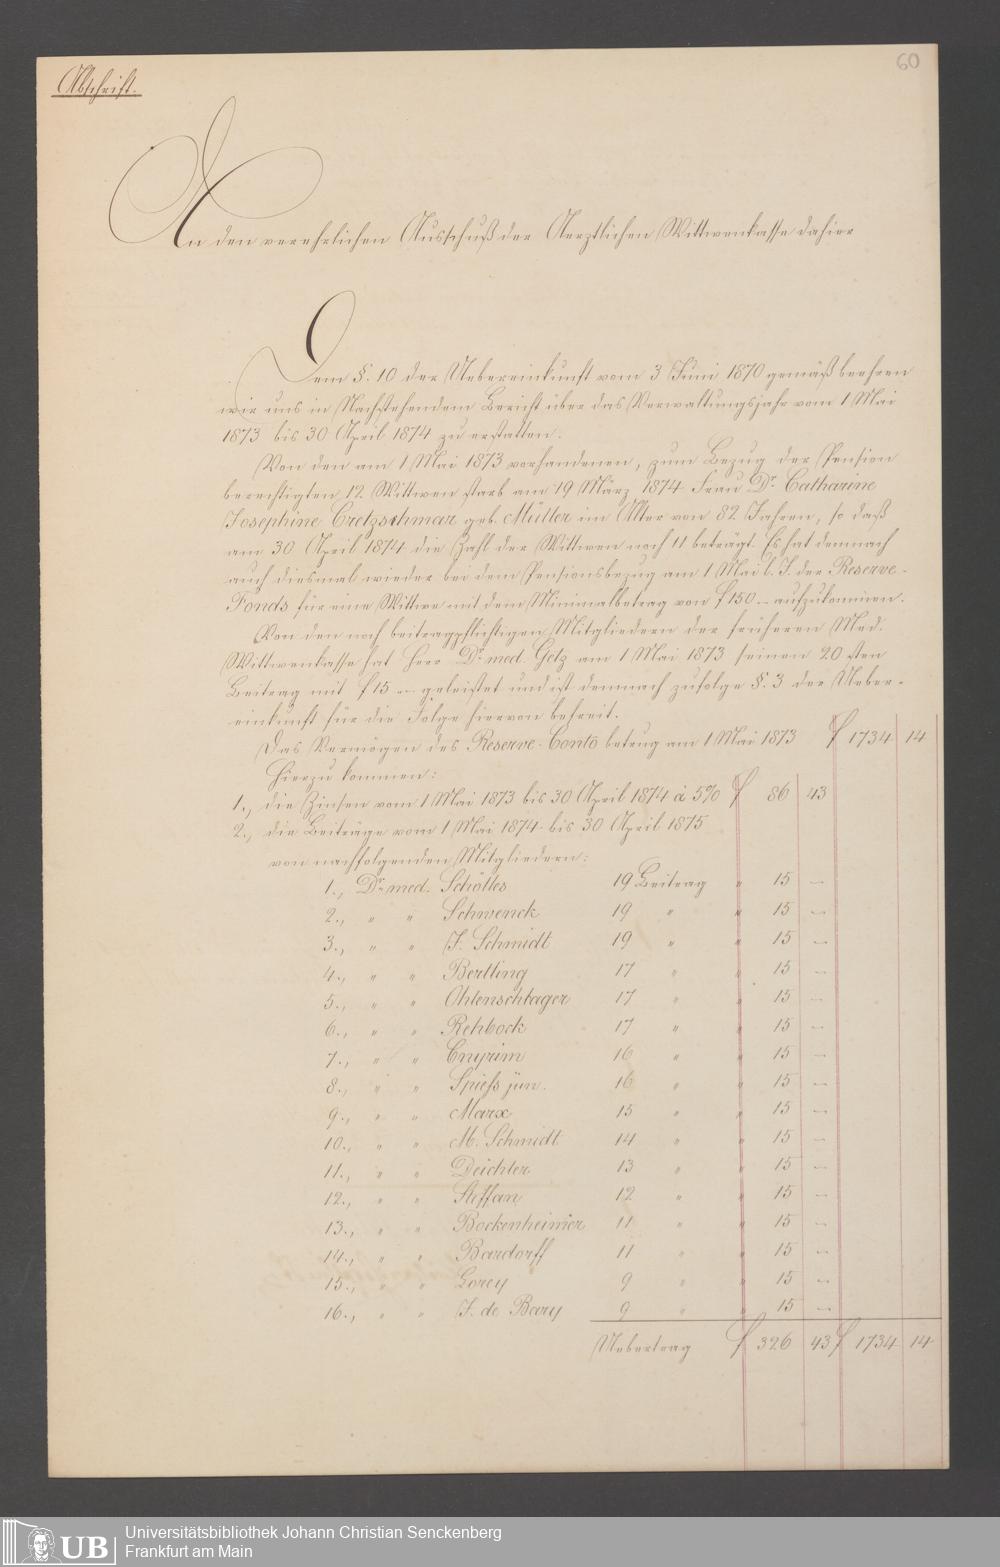 60
Abschrift.
An den verehrlichen Ausschuß der Aerztlichen Wittwenkasse dahier
Dem §. 10 der Uebereinkunft vom 3 Juni 1870 gemäß beehren
wir uns in Nachstehendem Bericht über das Verwaltungsjahr vom 1 Mai
1873 bis 30 April 1874 zu erstatten.
Von den am 1 Mai 1873 vorhandenen, zum Bezug der Pension
berechtigten 12 Wittwen starb am 19 März 1874 Frau Dr. Catharine
Josephine Cretzschmar geb. Müller im Alter von 82 Jahren, so daß
am 30 April 1874 die Zahl der Wittwen noch 11 beträgt. Es hat demnach
auch diesmal wieder bei dem Pensionsbezug am 1 Mai l. J. der Reserve-
Fonds für eine Wittwe mit dem Minimalbetrag von f 150 — aufzukommen.
Von den noch beitragpflichtigen Mitgliedern der früheren Med.
Wittwenkasse hat Herr Dr. med. Getz am 1 Mai 1873 seinen 20 sten
Beitrag mit f 15 — geleistet und ist demnach zufolge §. 3 der Ueber-
einkunft für die Folge hiervon befreit.
Das Vermögen des Reserve-Conto betrug am 1 Mai 1873 f 1734 14
Hierzu kommen:
1., die Zinsen vom 1 Mai 1873 bis 30 April 1874 à 5% f 86 43
2., die Beiträge vom 1 Mai 1874 bis 30 April 1875
von nachfolgenden Mitgliedern:
1., Dr. med. Schölles 19 Beitrag " 15 —
2., " " Schwenck 19 " " 15 —
3., " " J. Schmidt 19 " " 15 —
4., " " Bertling 17 " " 15 —
5., " " Ohlenschlager 17 " " 15 —
6., " " Rehbock 17 " " 15 —
7., " " Cnyrim 16 " " 15 —
8., " " Spiefs jun. 16 " " 15 —
9., " " Marx 15 " " 15 —
10., " " M. Schmidt 14 " " 15 —
11., " " Deichler 13 " " 15 —
12., " " Steffan 12 " " 15 —
13., " " Bockenheimer 11 " " 15 —
14., " " Bardorff 11 " " 15 —
15., " " Lorey 9 " " 15 —
16., " " J. de Bary 9 " " 15 —
Uebertrag f 326 43 f 1734 14
UB
Universitätsbibliothek Johann Christian Senckenberg
Frankfurt am Main